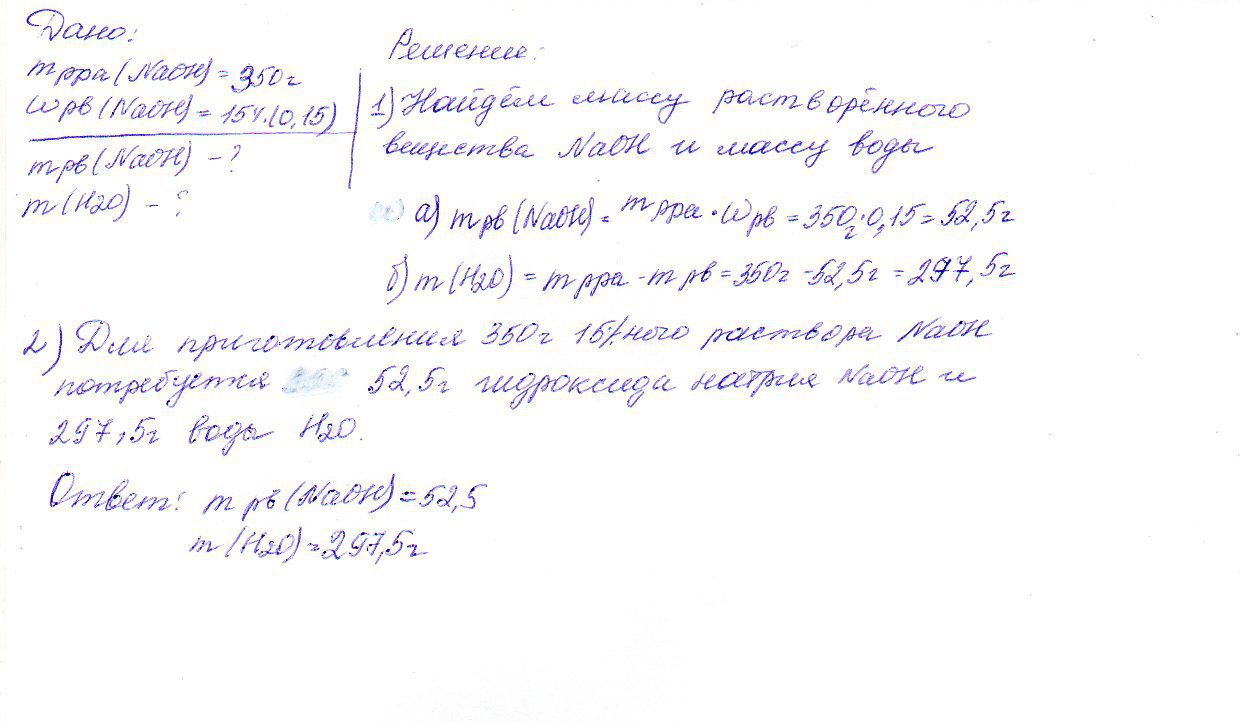 Дано:
m рра (NaOH) = 350г
ω рв (NaOH) = 15% (0,15)
m рв (NaOH) - ?
m (H2O) - ?
Решение:
1) Найдём массу растворённого
вещества NaOH и массу воды
а) m рв (NaOH) = m рра · ω рв = 350г · 0,15 = 52,5г
б) m (H2O) = m рра - m рв = 350г - 52,5г = 297,5г
2) Для приготовления 350г 15%ного раствора NaOH
потребуется 52,5г гидроксида натрия NaOH и
297,5г вода H2O.
Ответ: m рв (NaOH) = 52,5
m (H2O) = 297,5г